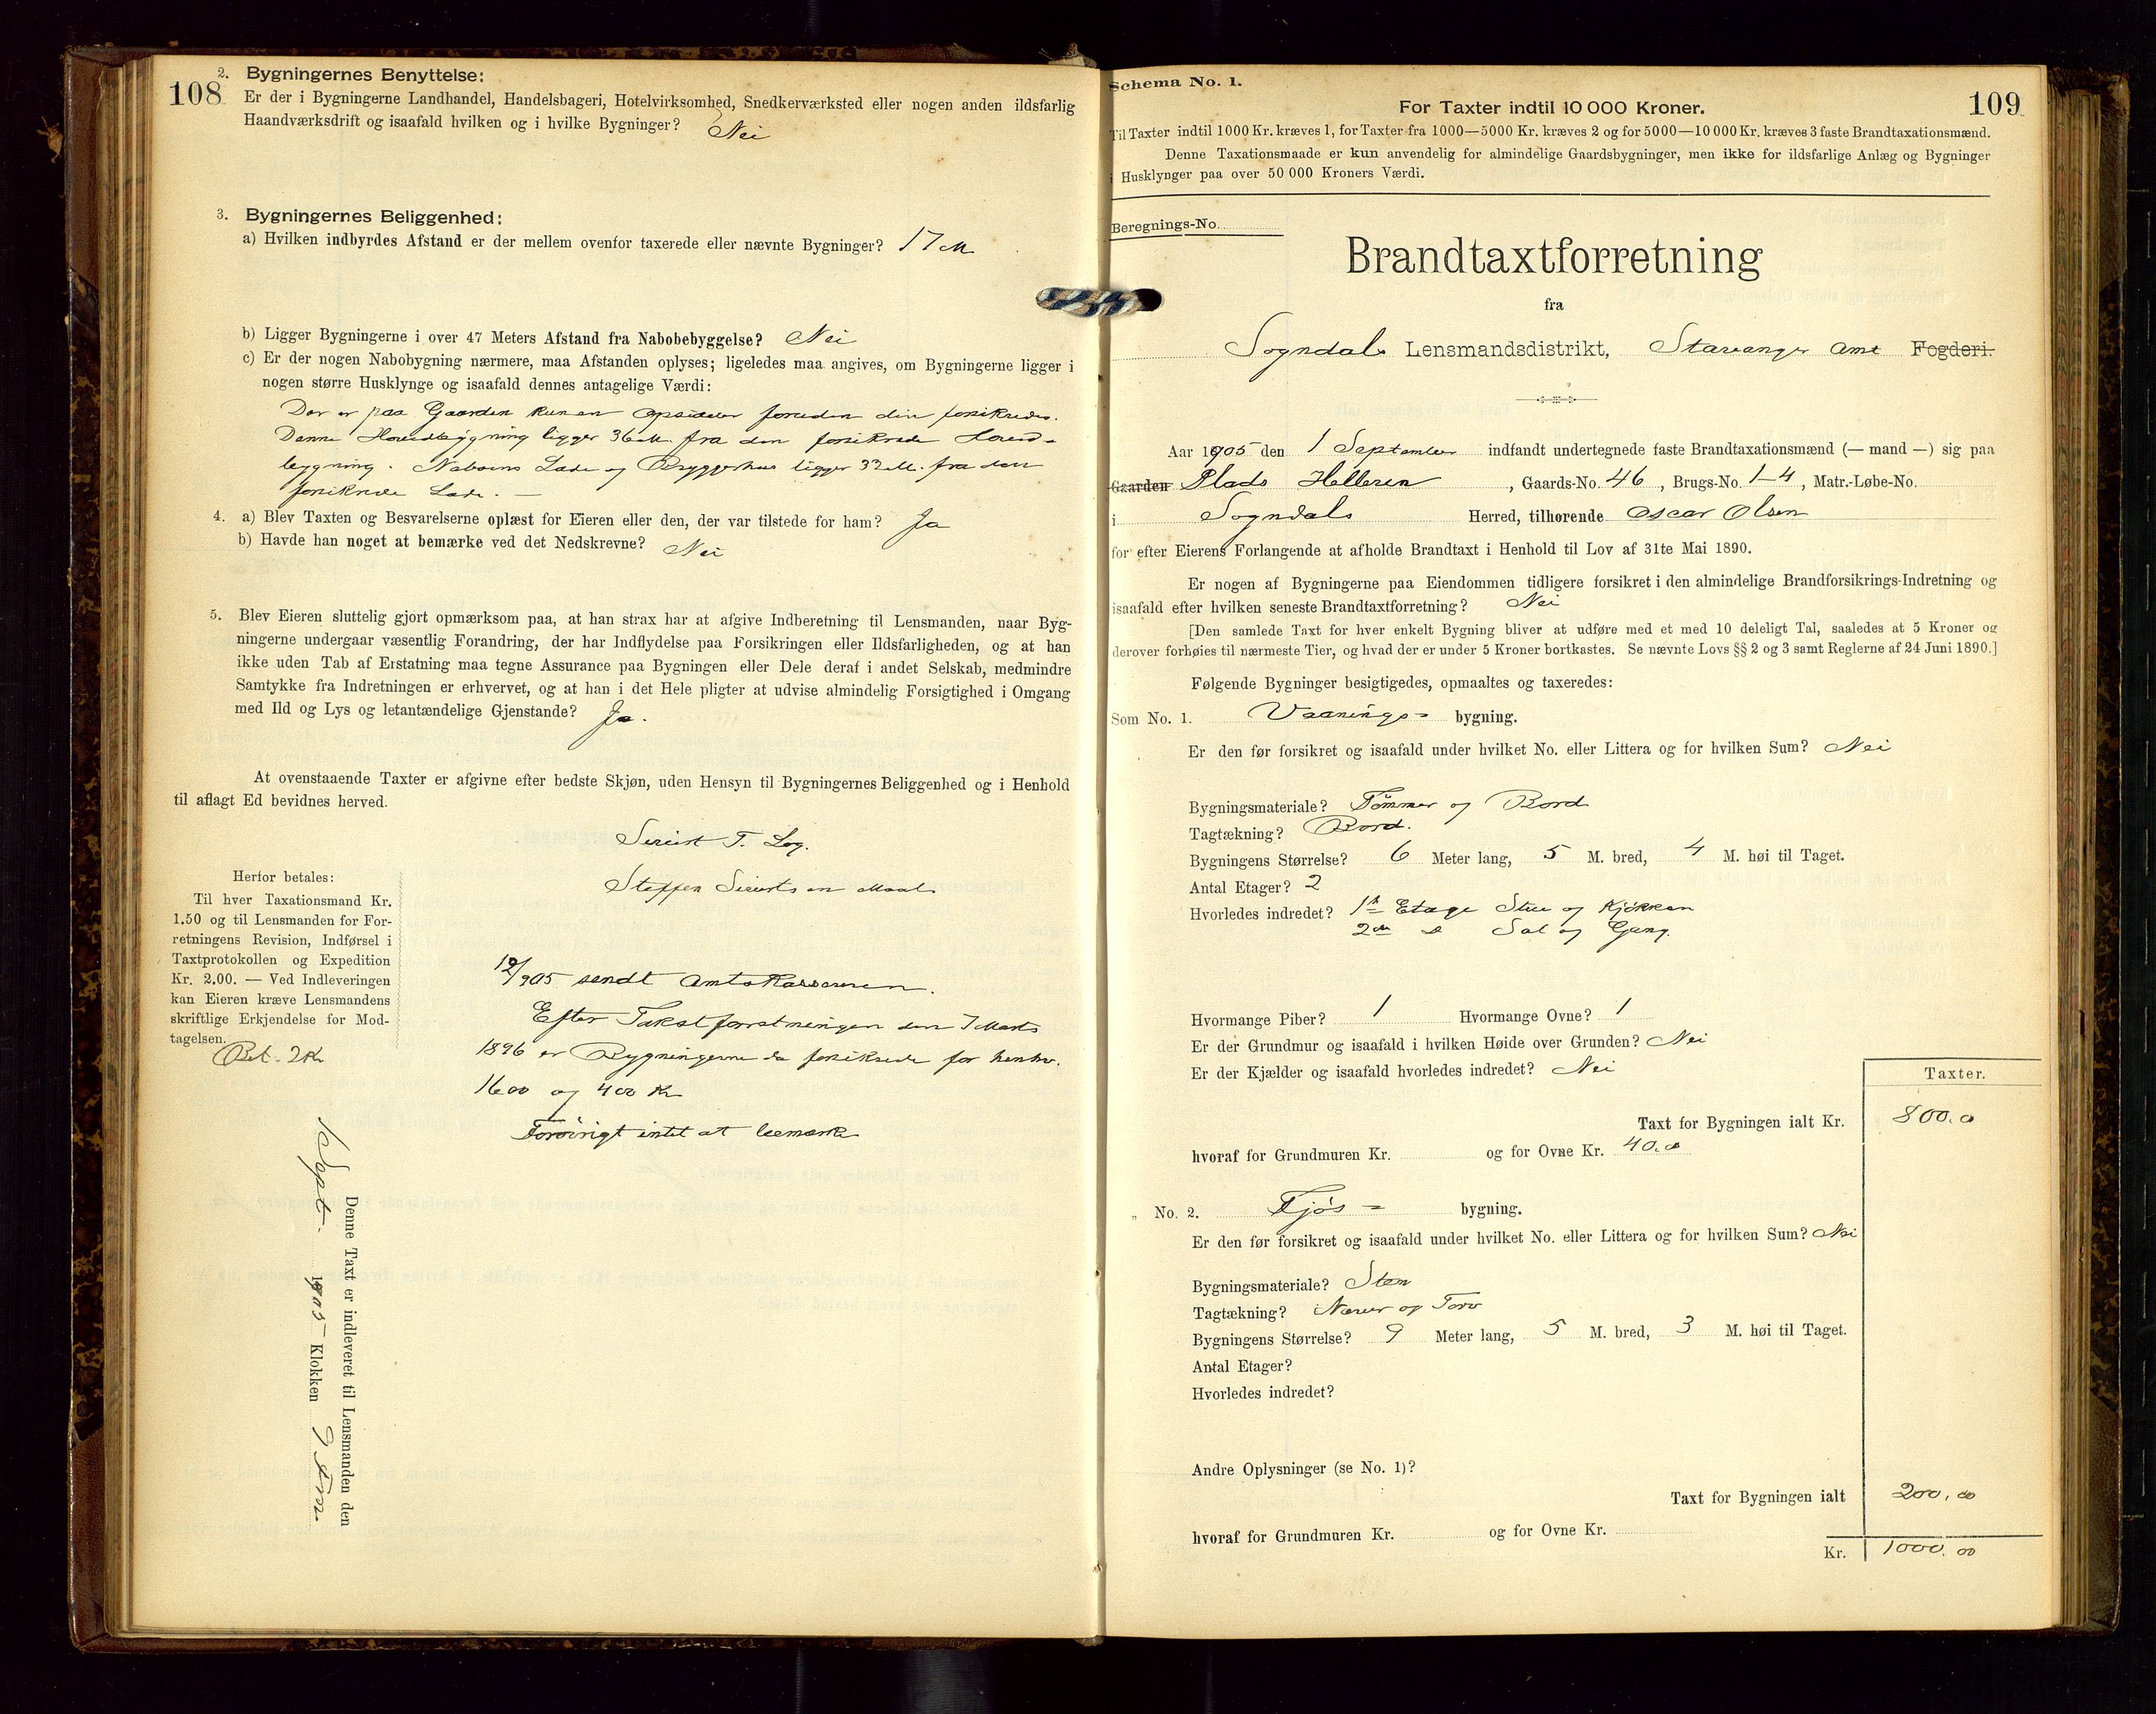 108
2. Bygningernes Benyttelse:
Er der i Bygningerne Landhandel, Handelsbageri, Hotelvirksomhed, Snedkerværksted eller nogen anden ildsfarlig
Haandværksdrift og isaafald hvilken og i hvilke Bygninger? Nei
3. Bygningernes Beliggenhed:
a) Hvilken indbyrdes Afstand er der mellem ovenfor taxerede eller nævnte Bygninger? 17 M
b) Ligger Bygningerne i over 47 Meters Afstand fra Nabobebyggelse? Nei
c) Er der nogen Nabobygning nærmere, maa Afstanden oplyses; ligeledes maa angives, om Bygningerne ligger i
nogen større Husklynge og isaafald dennes antagelige Værdi:
Der er paa Gaarden kun en Opsidder foruden den forsikredes.
Dennes Hovedbygning ligger 36 M. fra den forsikrede Hoved-
bygning. Naboens Lade og Bryggerhus ligger 32 M. fra den
forsikrede Lade. —
4. a) Blev Taxten og Besvarelserne oplæst for Eieren eller den, der var tilstede for ham? Ja
b) Havde han noget at bemærke ved det Nedskrevne? Nei
5. Blev Eieren sluttelig gjort opmærksom paa, at han strax har at afgive Indberetning til Lensmanden, naar Byg-
ningerne undergaar væsentlig Forandring, der har Indflydelse paa Forsikringen eller Ildsfarligheden, og at han
ikke uden Tab af Erstatning maa tegne Assurance paa Bygningen eller Dele deraf i andet Selskab, medmindre
Samtykke fra Indretningen er erhvervet, og at han i det Hele pligter at udvise almindelig Forsigtighed i Omgang
med Ild og Lys og letantændelige Gjenstande? Ja.
At ovenstaaende Taxter er afgivne efter bedste Skjøn, uden Hensyn til Bygningernes Beliggenhed og i Henhold
til aflagt Ed bevidnes herved.
Siewert T. Log.
Steffen Siewertsen Maal
Herfor betales:
Til hver Taxationsmand Kr.
1.50 og til Lensmanden for For-
retningens Revision, Indførsel i
Taxtprotokollen og Expedition
Kr. 2.00. — Ved Indleveringen
kan Eieren kræve Lensmandens
skriftlige Erkjendelse for Mod-
tagelsen.
Bet. 2 Kr
/905 sendt Amtskassereren.
Efter Takstforretningen den 7 Marts
1896 er Bygningerne da forsikrede for henhv.
1600 og 400 Kr
Forøvrigt intet at bemærke
Denne Taxt er indleveret til Lensmanden den
1 Sept. 1905 Klokken 9 Fm.
Schema No. 1.
109
For Taxter indtil 10 000 Kroner.
Til Taxter indtil 1000 Kr. kræves 1, for Taxter fra 1000—5000 Kr. kræves 2 og for 5000—10 000 Kr. kræves 3 faste Brandtaxationsmænd.
Denne Taxationsmaade er kun anvendelig for almindelige Gaardsbygninger, men ikke for ildsfarlige Anlæg og Bygninger
i Husklynger paa over 50 000 Kroners Værdi.
Beregnings-No.
Brandtaxtforretning
fra
Sogndals Lensmandsdistrikt, Stavanger Amt Fogderi.
Aar 1905 den 1 September indfandt undertegnede faste Brandtaxationsmænd (— mand —) sig paa
Gaarden Plads Helleren, Gaards-No. 46, Brugs-No. 1-4, Matr.-Løbe-No.
i Sogndals Herred, tilhørende Oscar Olsen
for efter Eierens Forlangende at afholde Brandtaxt i Henhold til Lov af 31te Mai 1890.
Er nogen af Bygningerne paa Eiendommen tidligere forsikret i den almindelige Brandforsikrings-Indretning og
isaafald efter hvilken seneste Brandtaxtforretning? Nei
[Den samlede Taxt for hver enkelt Bygning bliver at udføre med et med 10 deleligt Tal, saaledes at 5 Kroner og
derover forhøies til nærmeste Tier, og hvad der er under 5 Kroner bortkastes. Se nævnte Lovs §§ 2 og 3 samt Reglerne af 24 Juni 1890.]
Følgende Bygninger besigtigedes, opmaaltes og taxeredes:
Som No. 1. Vaanings- bygning.
Er den før forsikret og isaafald under hvilket No. eller Littera og for hvilken Sum? Nei
Bygningsmateriale? Tømmer og Bord
Tagtækning? Bord.
Bygningens Størrelse? 6 Meter lang, 5 M. bred, 4 M. høi til Taget.
Antal Etager? 2
Hvorledes indredet? 1ste Etage Stue og Kjøkken
2den Do Sal og Gang.
Hvormange Piber? 1 Hvormange Ovne? 1
Er der Grundmur og isaafald i hvilken Høide over Grunden? Nei
Er der Kjælder og isaafald hvorledes indredet? Nei
Taxter.
Taxt for Bygningen ialt Kr. 800.00
hvoraf for Grundmuren Kr. og for Ovne Kr. 40.00
„ No. 2. Fjøs- bygning.
Er den før forsikret og isaafald under hvilket No. eller Littera og for hvilken Sum? Nei
Bygningsmateriale? Sten
Tagtækning? Næver og Torv
Bygningens Størrelse? 9 Meter lang, 5 M. bred, 3 M. høi til Taget.
Antal Etager?
Hvorledes indredet?
Andre Oplysninger (se No. 1)?
Taxt for Bygningen ialt 200.00
hvoraf for Grundmuren Kr. og for Ovne Kr.
Kr. 1000.00